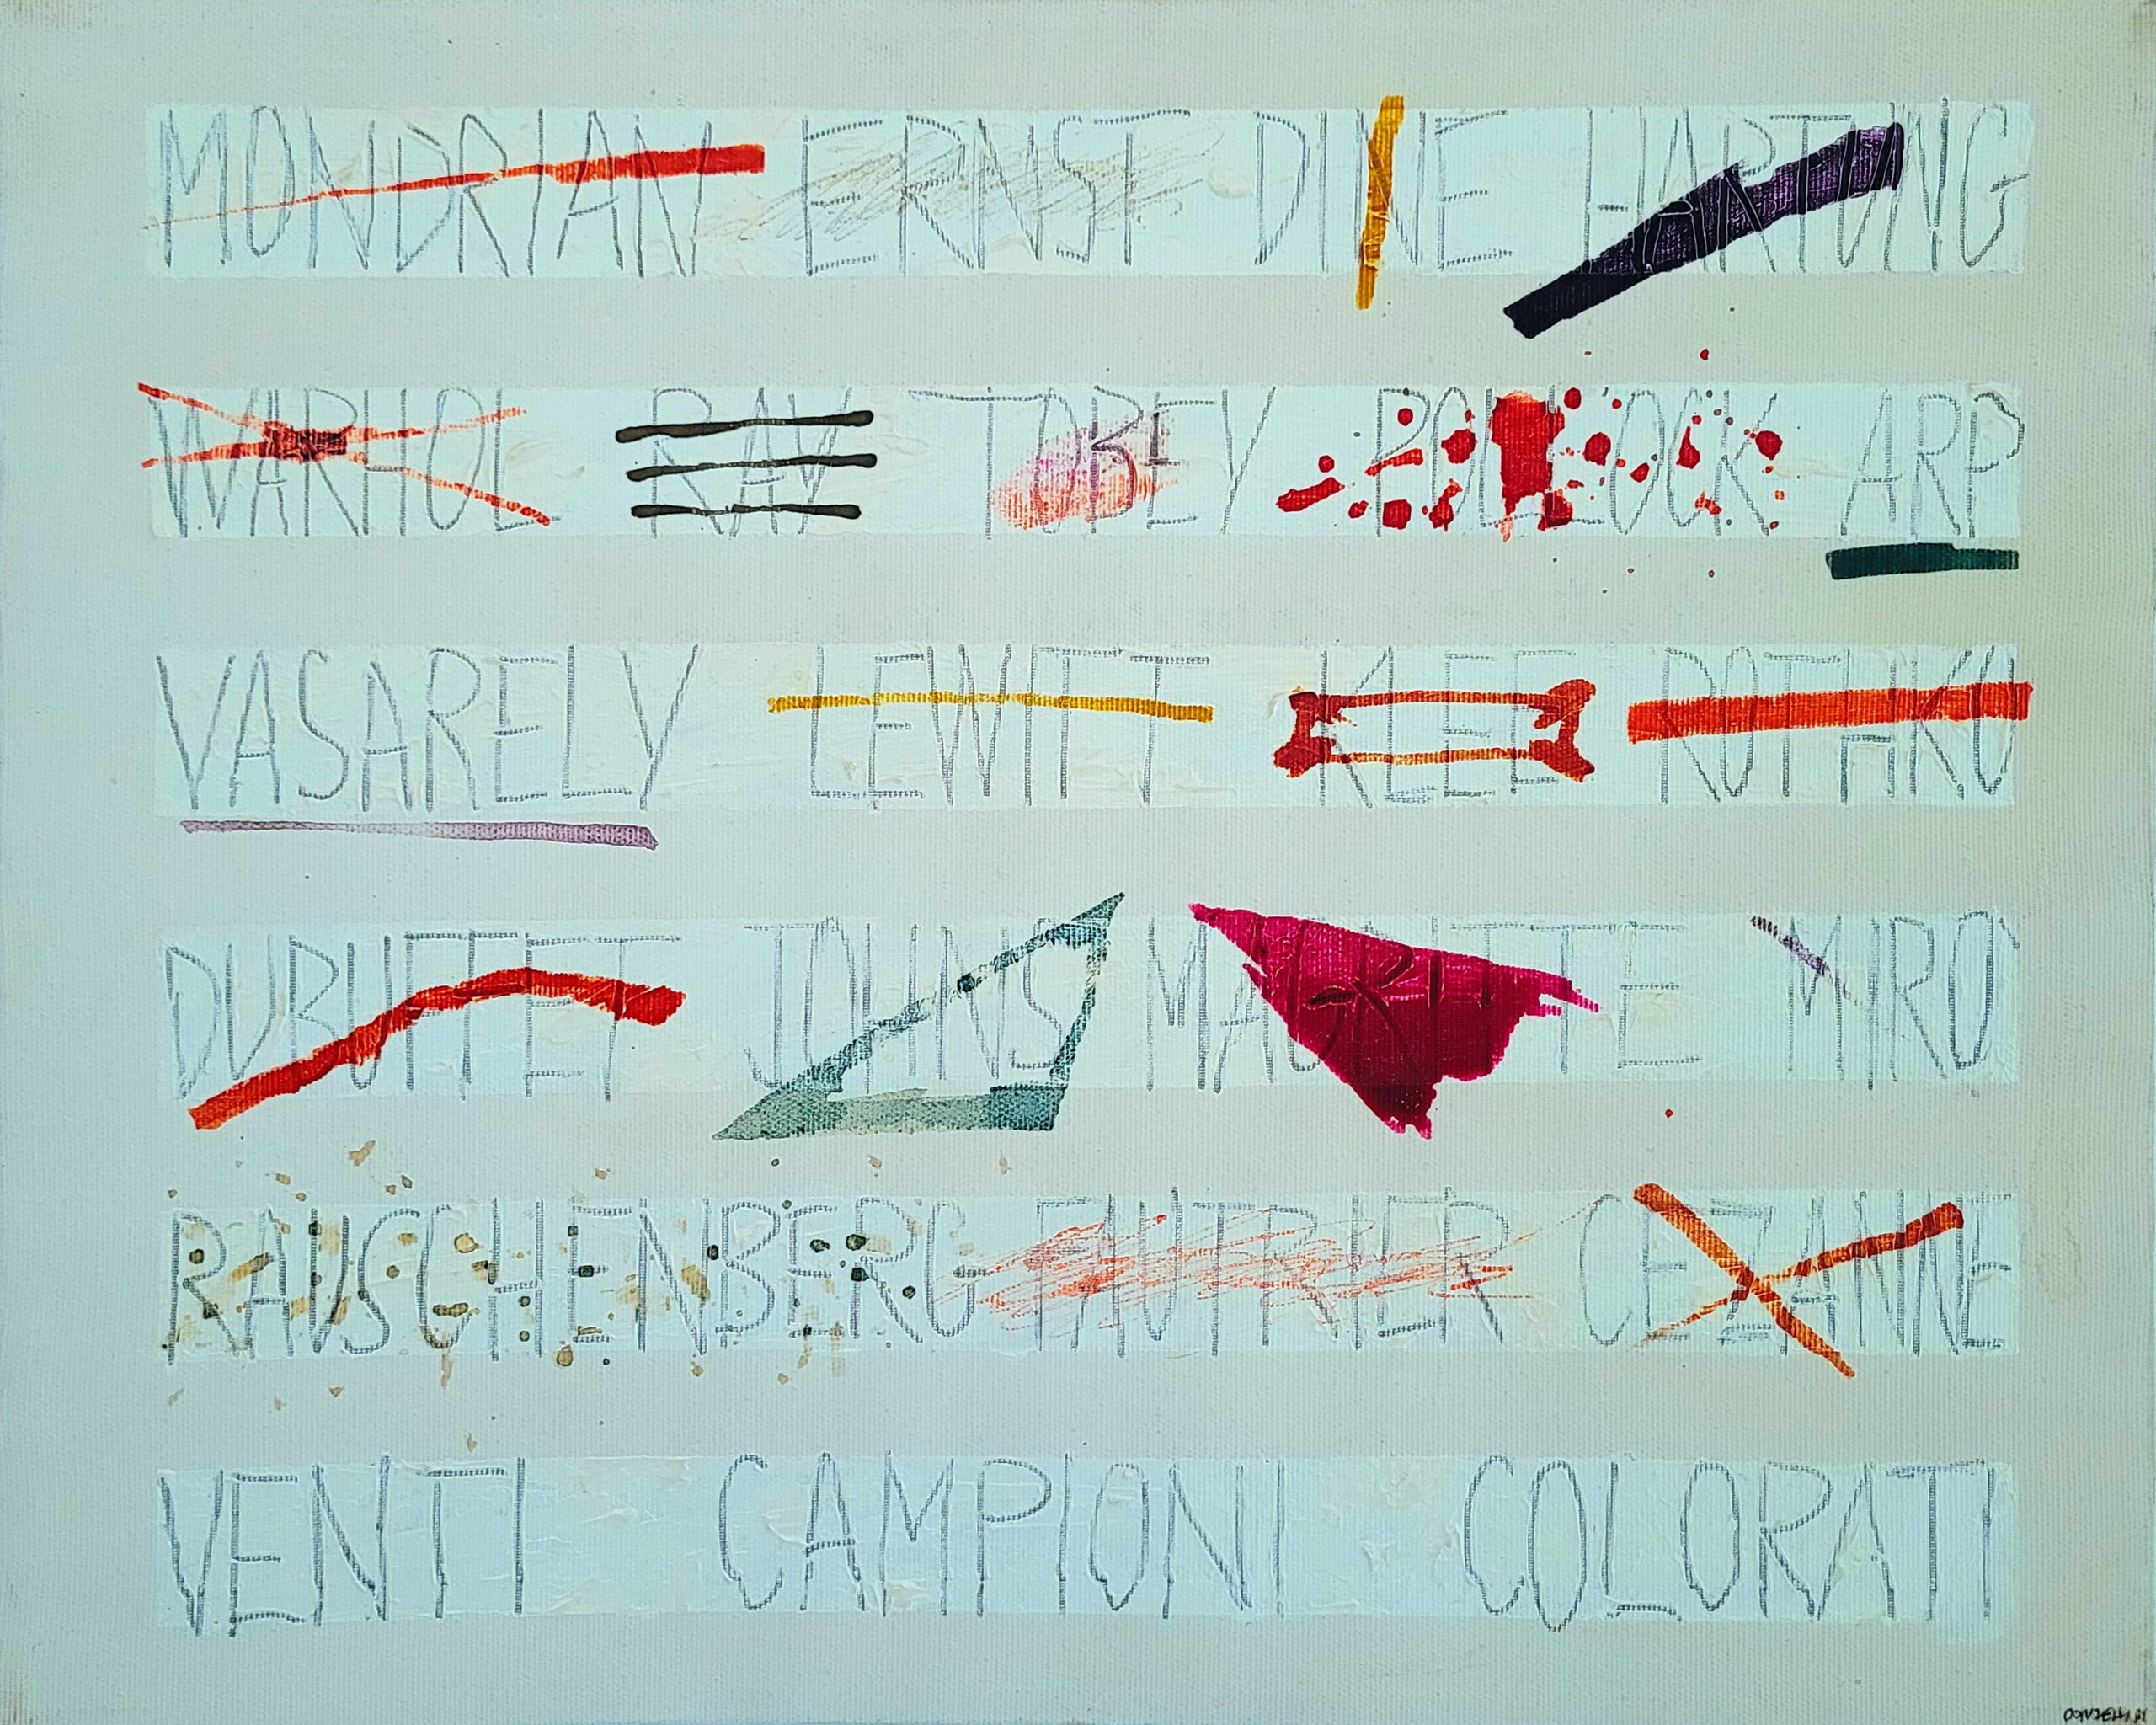 MONDRIAN ERNST DINE HARTUNG
WARHOL RAY TOBEY POLLOCK ARP
VASARELY LEWITT KLEE ROTHKO
DUBUFFET JOHNS MAGRITTE MIRO'
RAUSCHENBERG FAUTRIER CEZANNE
VENTI CAMPIONI COLORATI